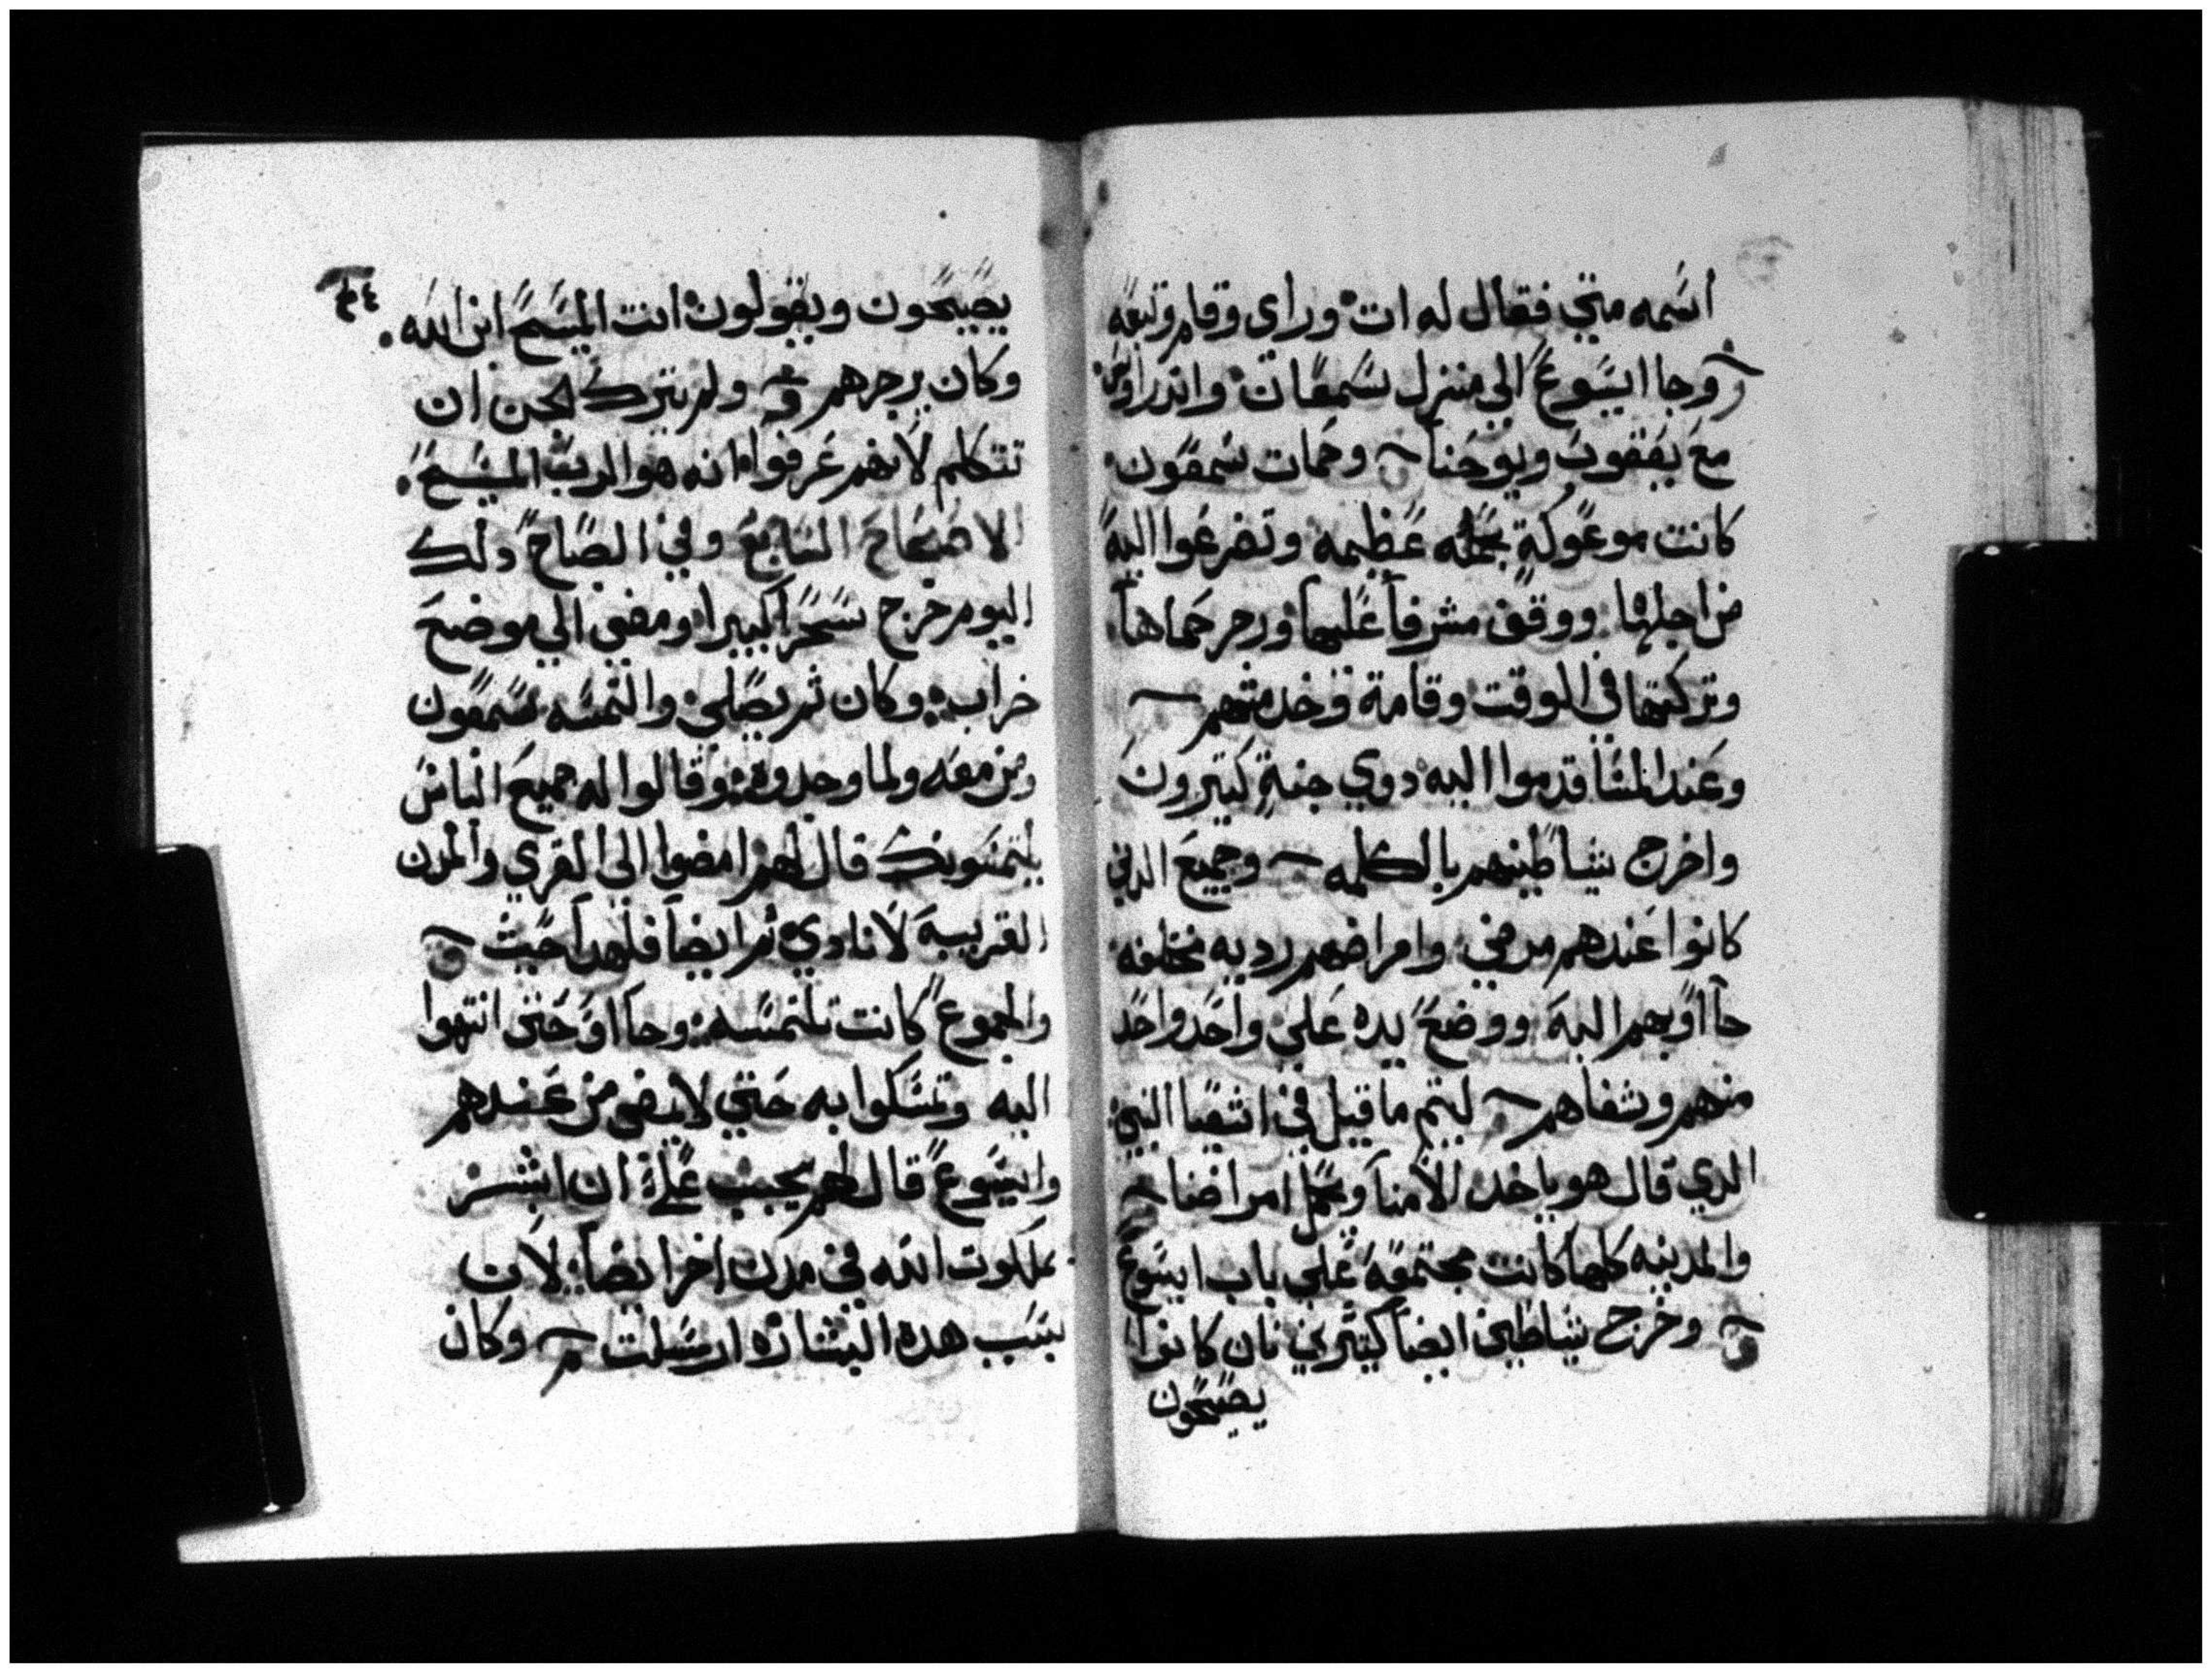 اسمه متي فقال له ات وراي وقام وتبعه
ر وجا ايسوع الي منزل سمعان واندراوس
مع يعقوب ويوحنا وحمات سمعون
كانت موعوكة بحمله عظيمه وتضرعوا اليه
من اجلها ووقف مشرفا عليها وزجر حماها
وتركتها في الوقت وقامة وخدمتهم
وعند المسا قدموا اليه دوي جنة كتيرون
واخرج شياطينهم بالكلمه وجميع الدين
كانوا عندهم مرضي وامراضهم رديه مختلفه
جااو بهم اليه ووضع يده علي واحد واحد
منهم وشفاهم ليتم ما قيل في اشعيا النبي
الدي قال هو ياخد الامنا ويحمل امراضنا
والمدينه كلها كانت مجتمعه علي باب ايسوع
ق وخرج شياطين ايضا كتيرين نان كانوا
يصيحون
٣٤
يصيحون ويقولون انت المسيح ابن الله
وكان يزجرهم ق ولم يترك لجن ان
تتكلم لانهم عرفوا انه هو الرب المسيح
الاصحاح السابع وفي الصباح دلك
اليوم خرج سحرا كبيرا ومضي الي موضع
خراب وكان تم يصلي والتمسه سمعون
ومن معه ولما وجدوه وقالوا له جميع الناس
يلتمسونك قال لهم امضوا الي القري والمدن
القريبه لانادي تم ايضا فلهدا جيت ق
والجموع كانت تلتمسه وجااو حتي انتهوا
اليه وتمسكوا به حتي لا يمضي من عندهم
وايسوع قال لهم يجيب علي ان ابشر
بملكوت الله في مدن اخرا ايضا لان
بسبب هده البشاره ارسلت م وكان